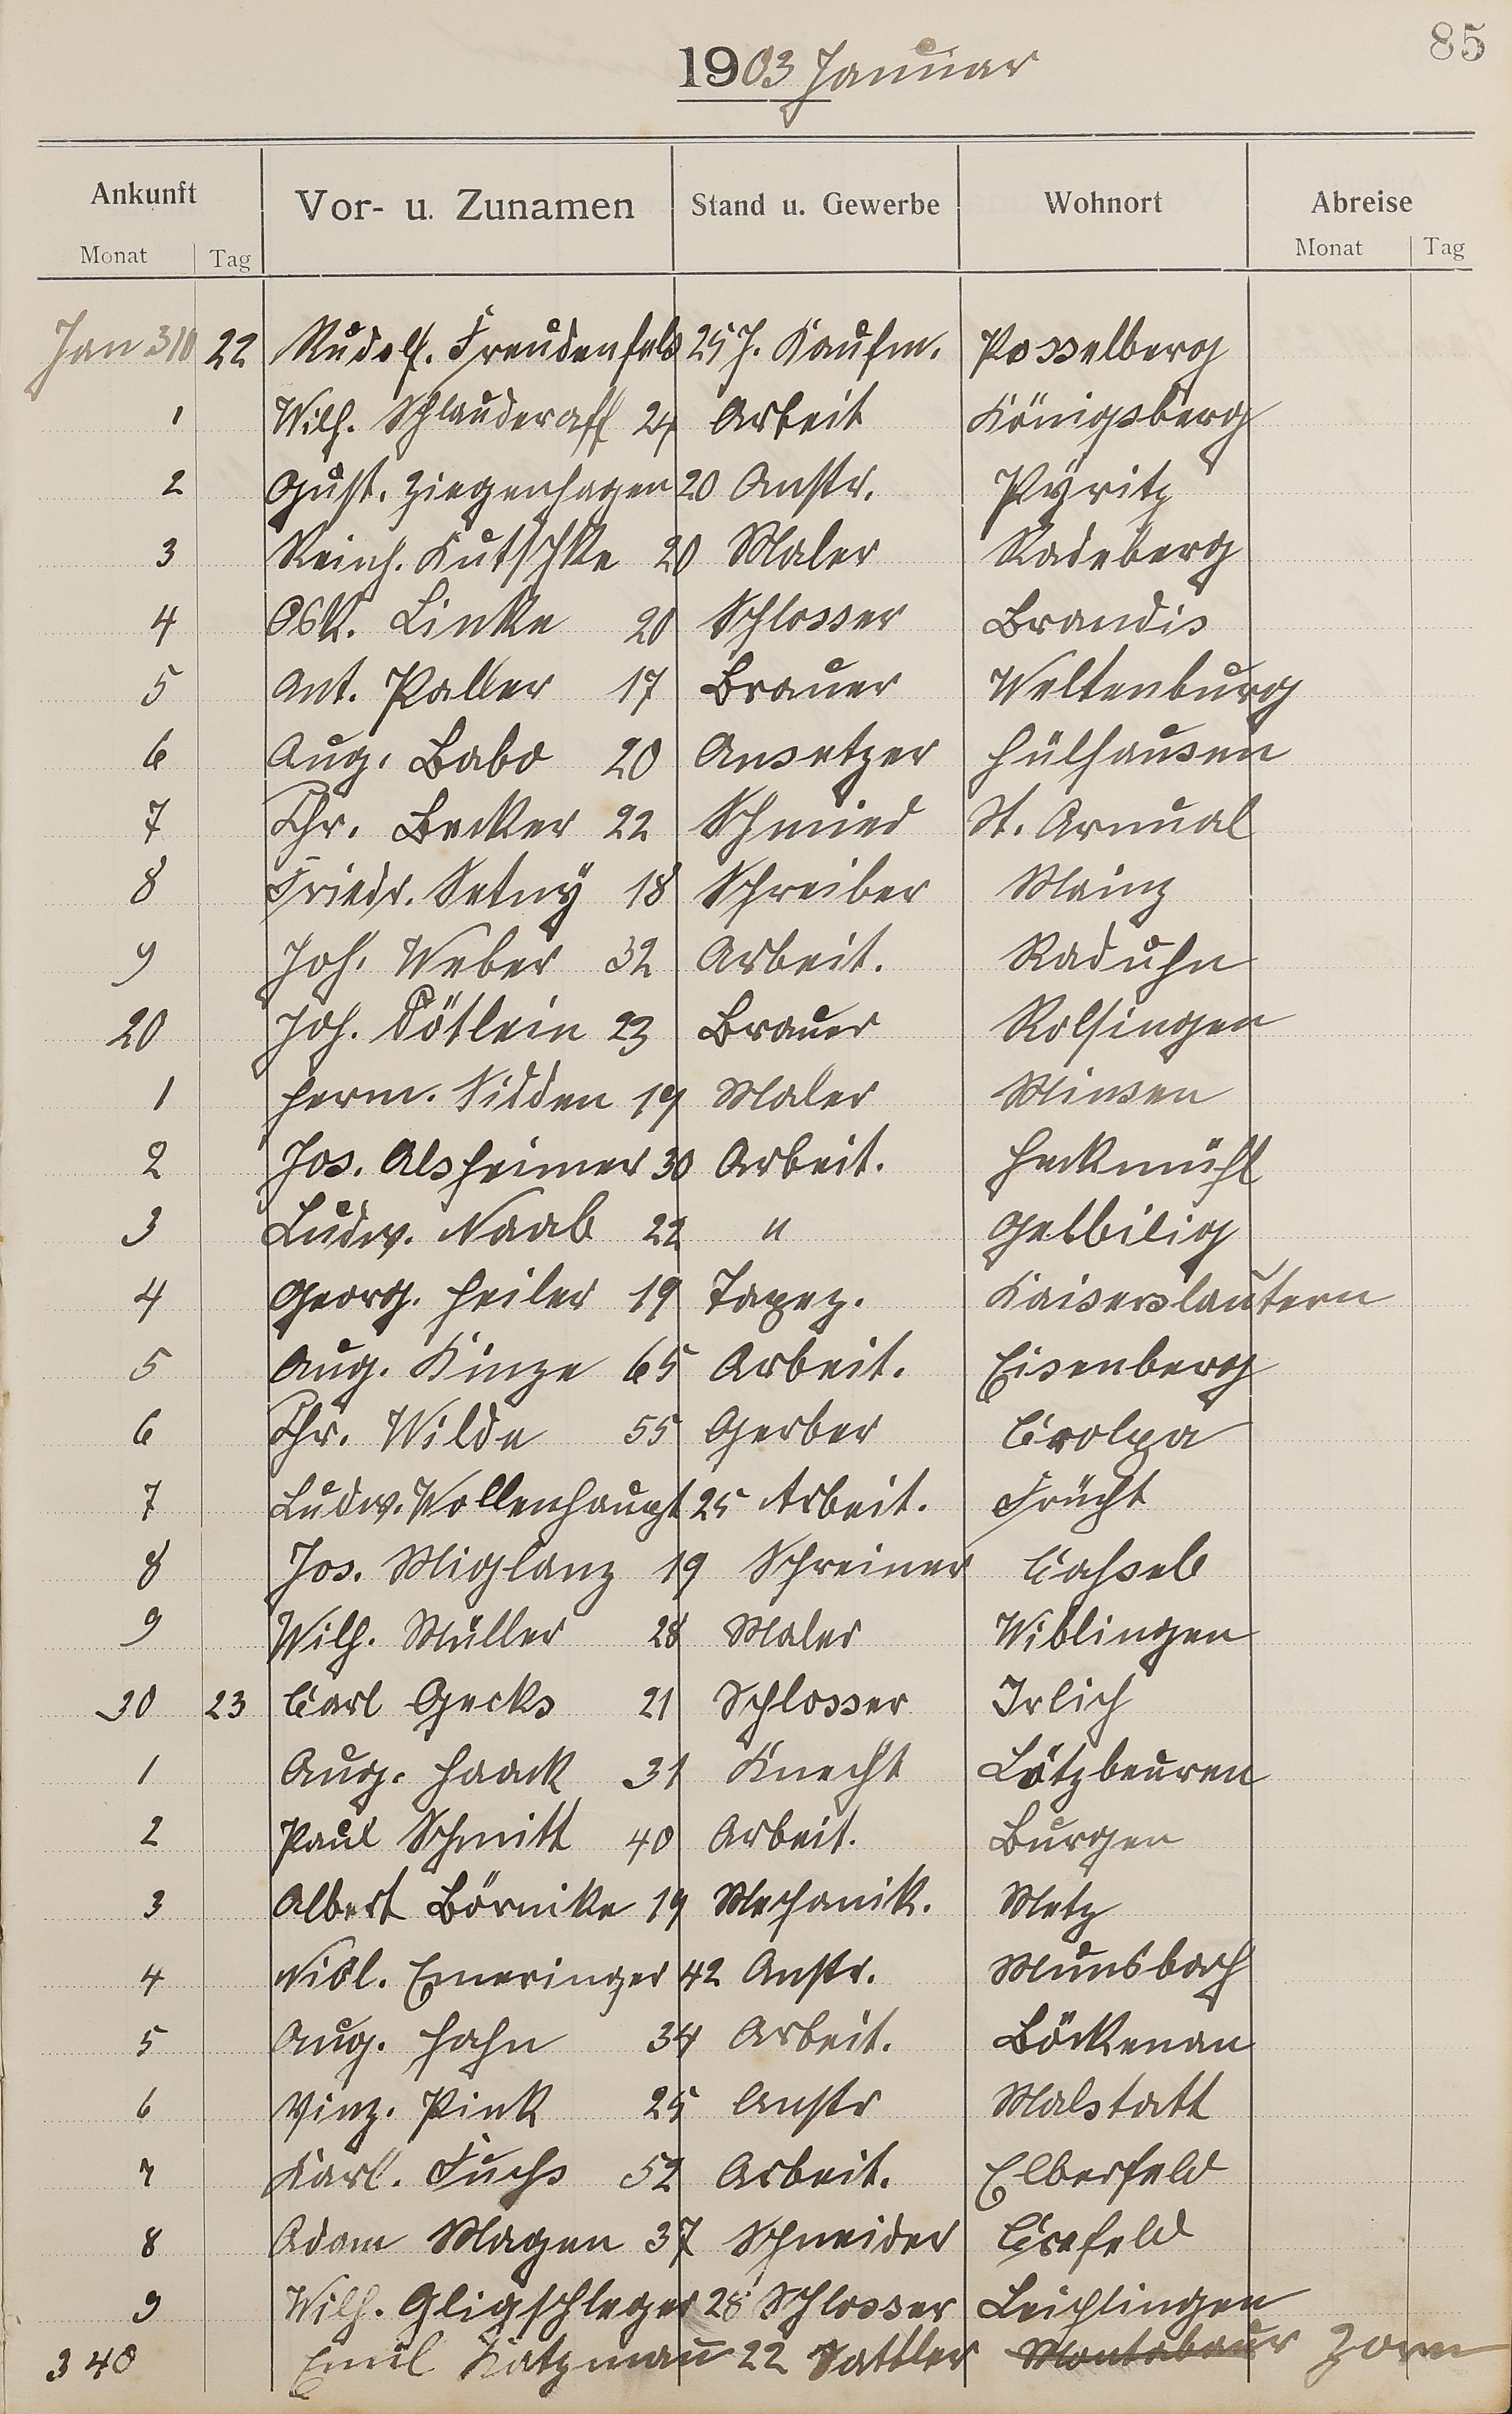 85
1903 Januar
Ankunft Vor- u. Zunamen Stand u. Gewerbe Wohnort Abreise
Monat Tag Monat Tag
Jan 310 22 Rudolf. Freudenfels 25 J. Kaufm. Posselberg
1 Wilh. Schlauderaff 24 Arbeit Königsberg
2 Gust. Ziegenhagen 20 Anstr. Pyritz
3 Reinh. Kutschke 20 Maler Radeberg
4 Osk. Linke 20 Schlosser Brandis
5 Ant. Paller 17 Brauer Weltenburg
6 Aug. Babo 20 Ansetzer Hülhausen
7 Chr. Becker 22 Schmied St. Arnual
8 Friedr. Setny 18 Schreiber Mainz
9 Joh. Weber 32 Arbeit. Raduhn
20 Joh. Dötlein 23 Brauer Rolsingen
1 Herm. Sidden 19 Maler Minsen
2 Jos. Alsheimer 30 Arbeit. Heckmühl
3 Ludw. Naab 22 " Gelbilig
4 Georg. Heiler 19 Tapez. Kaiserslautern
5 Aug. Kinze 65 Arbeit. Eisenberg
6 Chr. Wilde 55 Gerber Crolpa
7 Ludw. Wollenhaupt 25 Arbeit. Frücht
8 Jos. Miglanz 19 Schreiner Cassel
9 Wilh. Müller 28 Maler Wiblingen
30 23 Carl Gecks 21 Schlosser Irlich
1 Aug. Haack 31 Knecht Lötzbeuren
2 Paul Schmitt 40 Arbeit. Burgen
3 Albert Börnike 19 Mechanik. Metz
4 Nikl. Emeringer 42 Anstr. Munsbach
5 Aug. Hahn 34 Arbeit. Böckenau
6 Vinz. Pink 25 Anstr Malstatt
7 Karl. Fuchs 52 Arbeit. Elberfeld
8 Adam Magen 37 Schneider Crefeld
9 Wilh. Gligschleger 28 Schlosser Leichlingen
340 Emil Katzmann 22 Sattler Montabaur Zorn